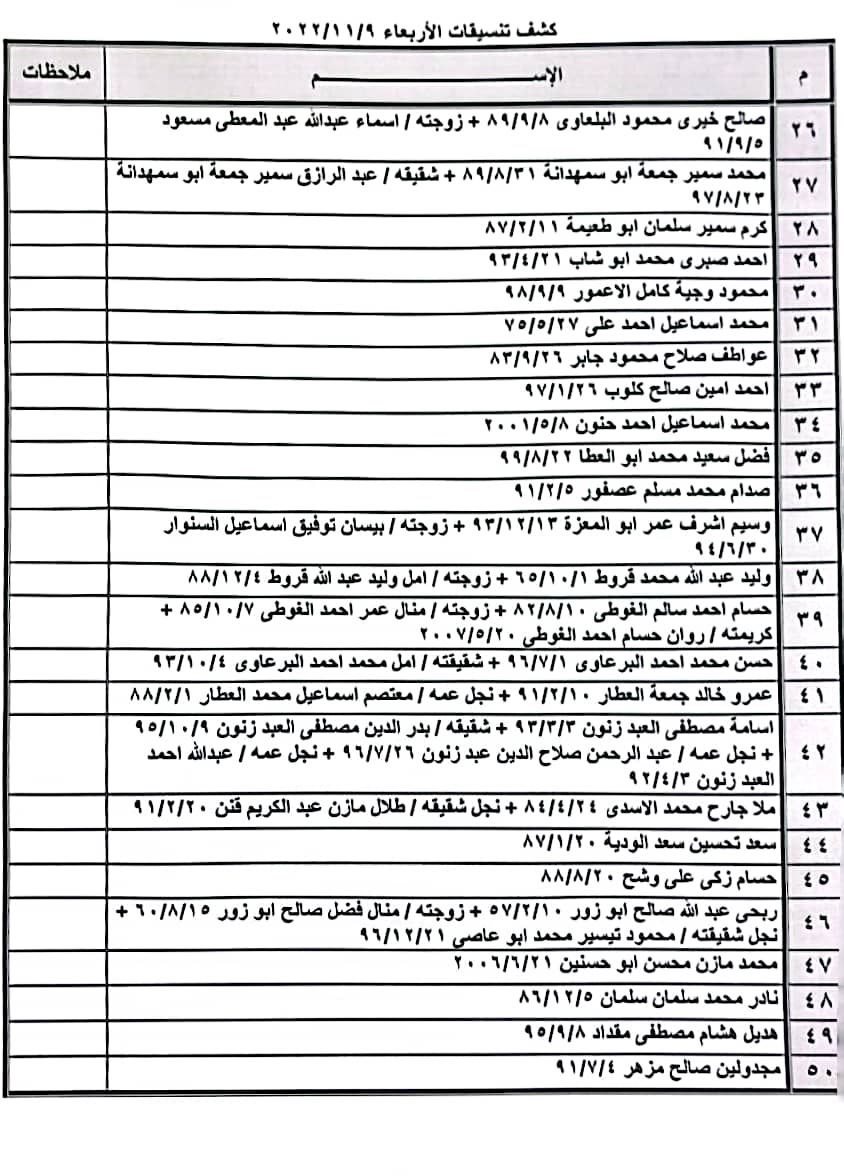 كشف تنسيقات الأربعاء ٢٠٢٢/١١/٩
م الإســـــــــــم ملاحظات
٢٦ صالح خيرى محمود البلعاوى ٨٩/٩/٨ + زوجته / اسماء عبدالله عبد المعطى مسعود
٩١/٩/٥
٢٧ محمد سمير جمعة ابو سمهدانة ٨٩/٨/٣١ + شقيقه / عبد الرازق سمير جمعة ابو سمهدانة
٩٧/٨/٢٣
٢٨ كرم سمير سلمان ابو طعيمة ٨٧/٢/١١
٢٩ احمد صبرى محمد ابو شاب ٩٣/٤/٢١
٣٠ محمود وجية كامل الاعمور ٩٨/٩/٩
٣١ محمد اسماعيل احمد على ٧٥/٥/٢٧
٣٢ عواطف صلاح محمود جابر ٨٣/٩/٢٦
٣٣ احمد امين صالح كلوب ٩٧/١/٢٦
٣٤ محمد اسماعيل احمد حنون ٢٠٠١/٥/٨
٣٥ فضل سعيد محمد ابو العطا ٩٩/٨/٢٢
٣٦ صدام محمد مسلم عصفور ٩١/٢/٥
٣٧ وسيم اشرف عمر ابو المعزة ٩٣/١٢/١٣ + زوجته / بيسان توفيق اسماعيل السنوار
٩٤/٦/٣٠
٣٨ وليد عبد الله محمد قروط ٦٥/١٠/١ + زوجته / امل وليد عبد الله قروط ٨٨/١٢/٤
٣٩ حسام احمد سالم الغوطى ٨٢/٨/١٠ + زوجته / منال عمر احمد الغوطى ٨٥/١٠/٧ +
كريمته / روان حسام احمد الغوطى ٢٠٠٧/٥/٢٠
٤٠ حسن محمد احمد البرعاوى ٩٦/٧/١ + شقيقته / امل محمد احمد البرعاوى ٩٣/١٠/٤
٤١ عمرو خالد جمعة العطار ٩١/٢/١٠ + نجل عمه / معتصم اسماعيل محمد العطار ٨٨/٢/١
٤٢ اسامة مصطفى العبد زنون ٩٣/٣/٣ + شقيقه / بدر الدين مصطفى العبد زنون ٩٥/١٠/٩
+ نجل عمه / عبد الرحمن صلاح الدين عبد زنون ٩٦/٧/٢٦ + نجل عمه / عبدالله احمد
العبد زنون ٩٢/٤/٣
٤٣ ملا جارح محمد الاسدى ٨٤/٤/٢٤ + نجل شقيقه / طلال مازن عبد الكريم قنن ٩١/٢/٢٠
٤٤ سعد تحسين سعد الودية ٨٧/١/٢٠
٤٥ حسام زكى على وشح ٨٨/٨/٢٠
٤٦ ربحى عبد الله صالح ابو زور ٥٧/٢/١٠ + زوجته / منال فضل صالح ابو زور ٦٠/٨/١٥ +
نجل شقيقته / محمود تيسير محمد ابو عاصى ٩٦/١٢/٢١
٤٧ محمد مازن محسن ابو حسنين ٢٠٠٦/٦/٢١
٤٨ نادر محمد سلمان سلمان ٨٦/١٢/٥
٤٩ هديل هشام مصطفى مقداد ٩٥/٩/٨
٥٠ مجدولين صالح مزهر ٩١/٧/٤